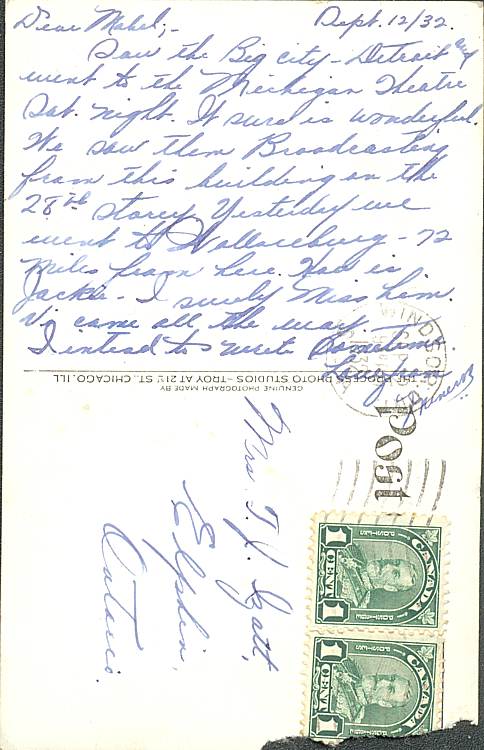 Dear Mabel;- Sept. 12/32.
Saw the Big city - Detroit and
went to the Michigan Theatre
Sat. night. It sure is wonderful.
We saw them Broadcasting
from this building on the
28th storey. Yesterday we
went to Wallaceburg - 72
miles from here. How is
Jackie - I surely miss him
Vi came all the way.
I intend to write sometime.
Love from
GENUINE PHOTOGRAPH MADE BY
THE PROCESS PHOTO STUDIOS - TROY AT 21ST ST., CHICAGO, ILL.
WINDSOR
Post
Mrs T. J.
Elphin,
Ontario.
CANADA
POSTES
1 CENT 1
CANADA
POSTES
1 CENT 1